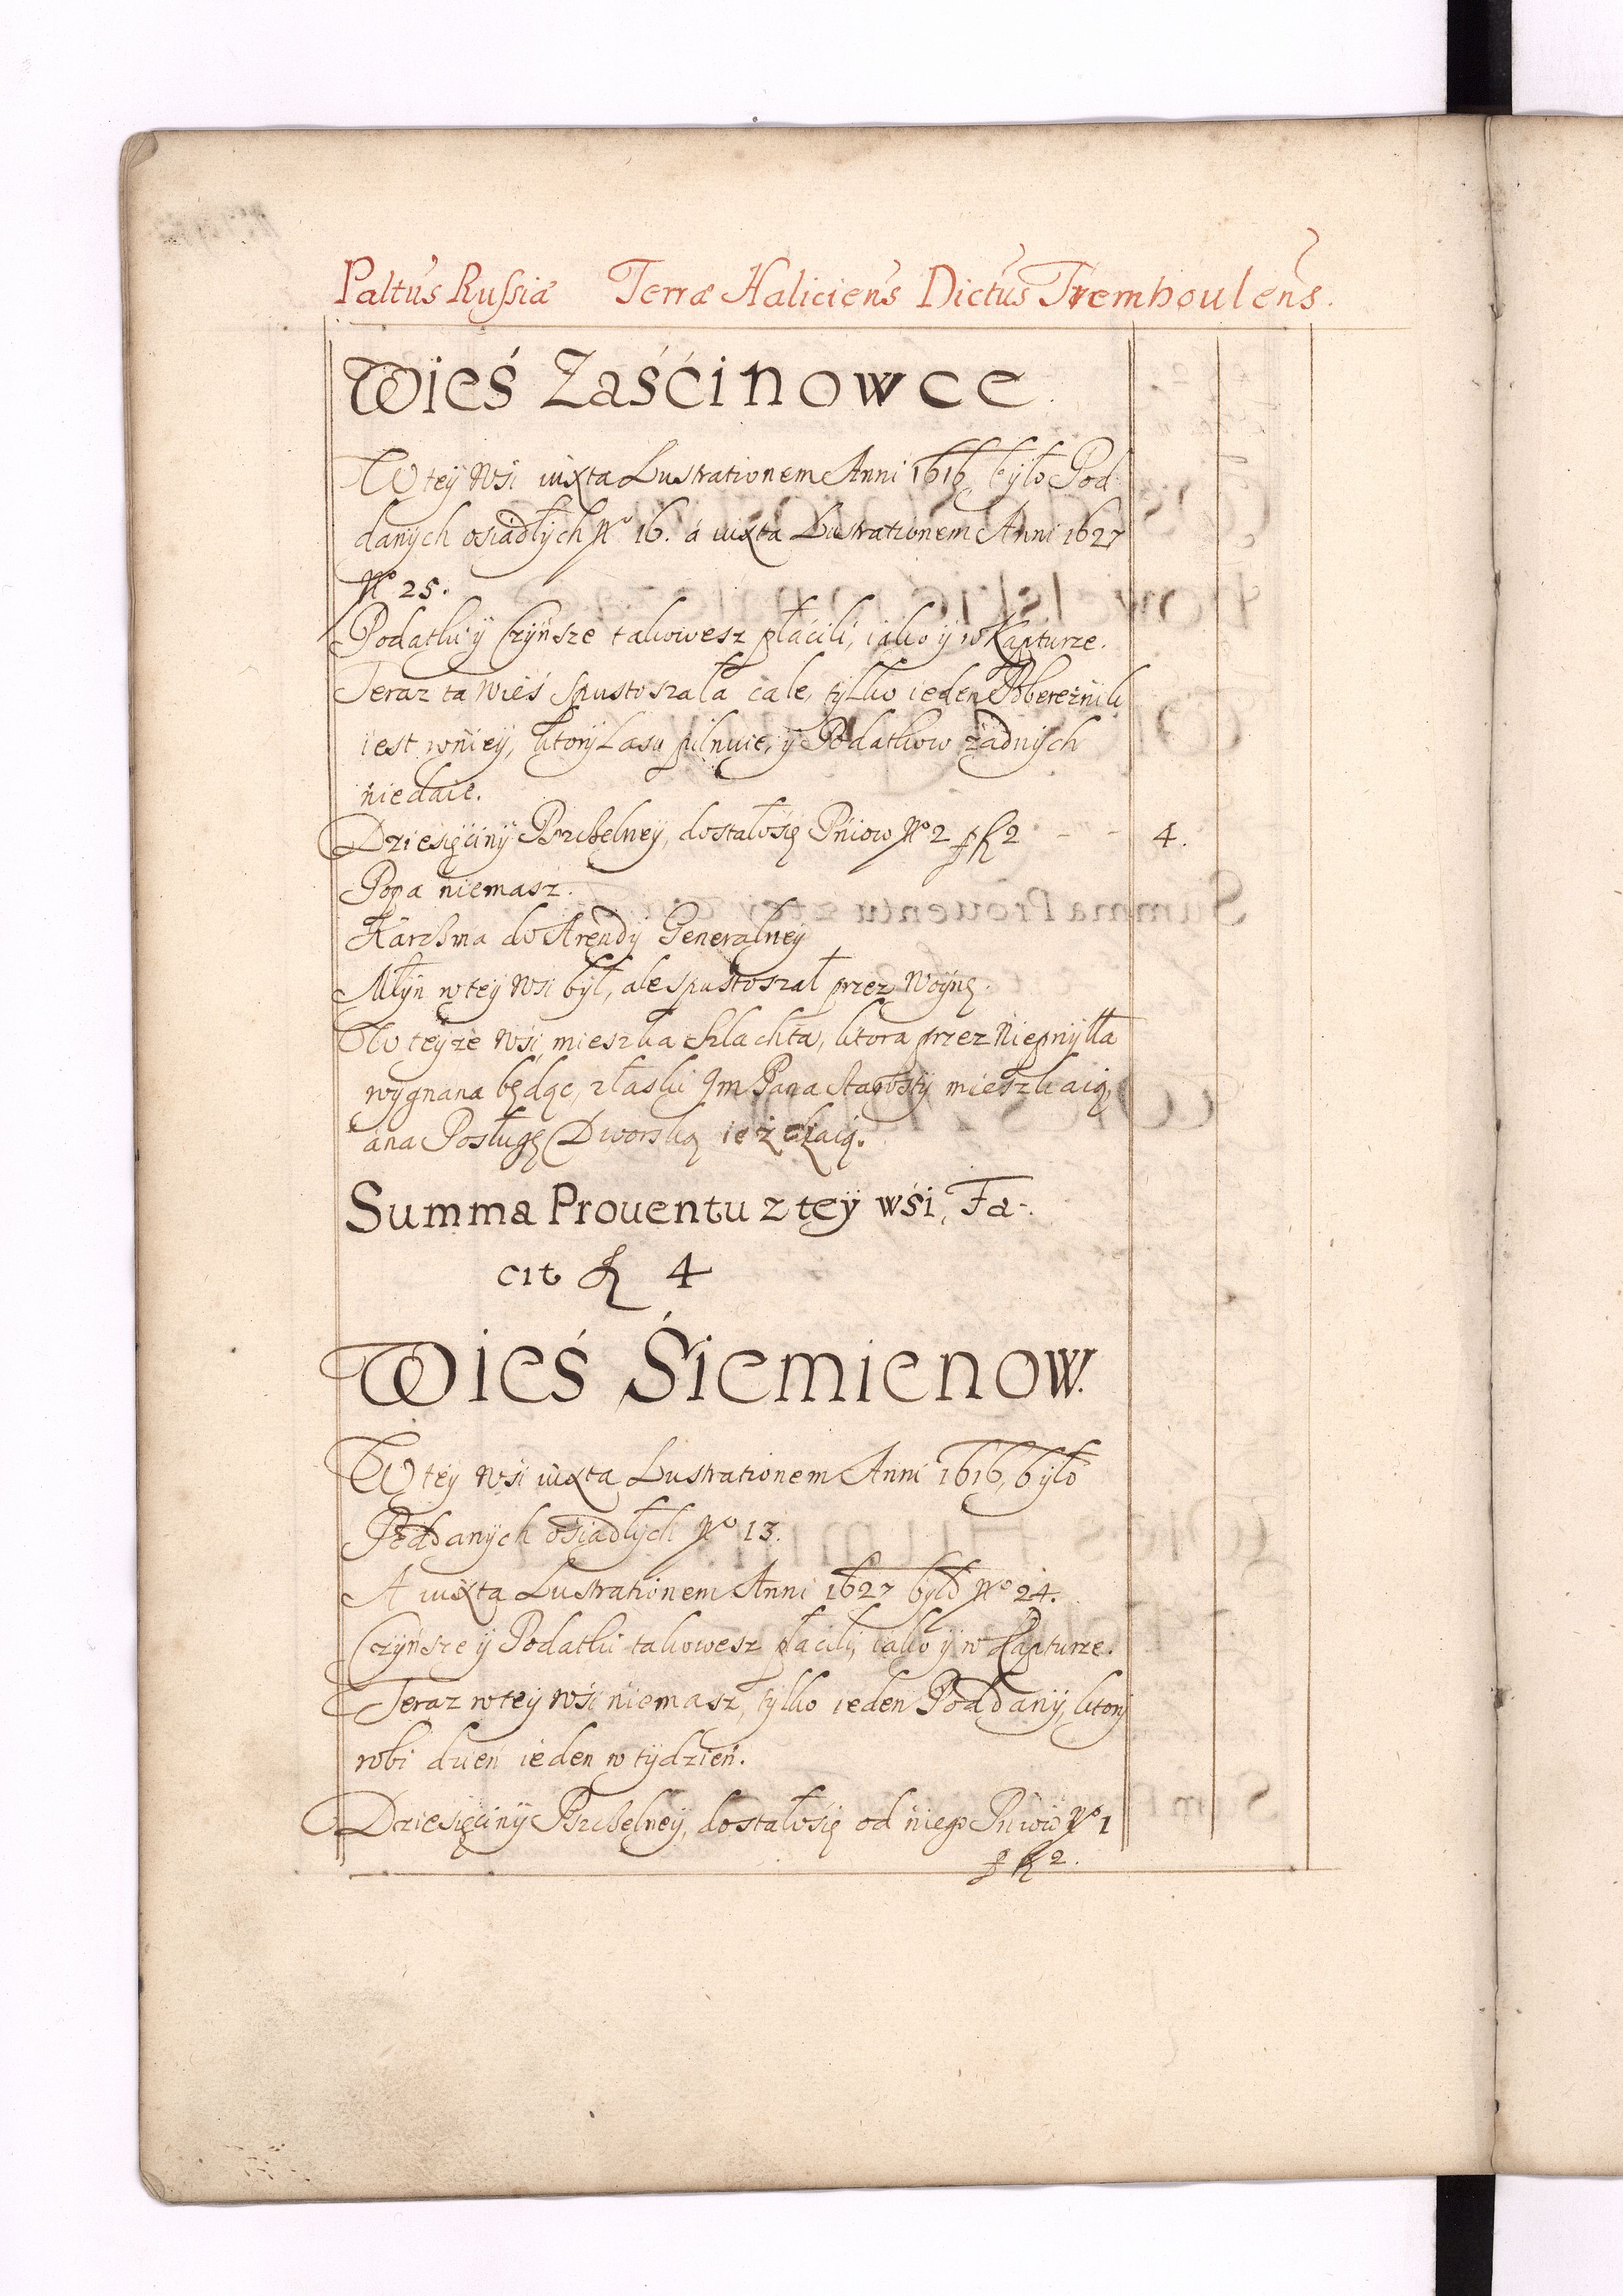 Paltus Russiæ Terræ Haliciens Dictus Tremboulens.
Wieś Zaśćinowce
W tey wsi iuxta Lustrationem Anni 1616 było Pod
danych osiadłych No 16. á iuxta Lustrationem Anni 1627
No 25.
Podatki ÿ Czÿńsze takowesz płacili, iako ÿ w Kapturze.
Teraz ta wieś spustoszała cale, tylko ieden Pobereżnik
iest wniey, ktory Lasu pilnuie, ÿ Podatkow żadnych
niedaie.
Dziesięcinÿ Pszczelney, dostało się Pniow No 2 p fl 2 - - 4.
Popa niemasz.
Karczma do Arendÿ Generalney
Młyn w tey wsi był, ale spustoszał przez Woynę.
W teyże wsi mieszka Szlachta, ktora przez Niepryiª
wygnana będąc, z łaski Jm Pana Starosty mieszkaią,
ana Posługę Dworską ieżdżaią.
Summa Prouentu z teÿ wśi, Fa-
cit fl 4
Wieś Śiemienow.
W tey wsi iuxta Lustrationem Anni 1616, było
Poddanych osiadłych No 13.
A iuxta Lustrationem Anni 1627 było No 24.
Czÿńsze ÿ Podatki takowesz płacili, iako ÿ w Kapturze.
Teraz w tey wsi niemasz, tylko ieden Poddany, ktory
robi dzień ieden w tydzień.
Dziesięcinÿ Pszczelney, dostało się od niego Pniow No 1
p fl 2.